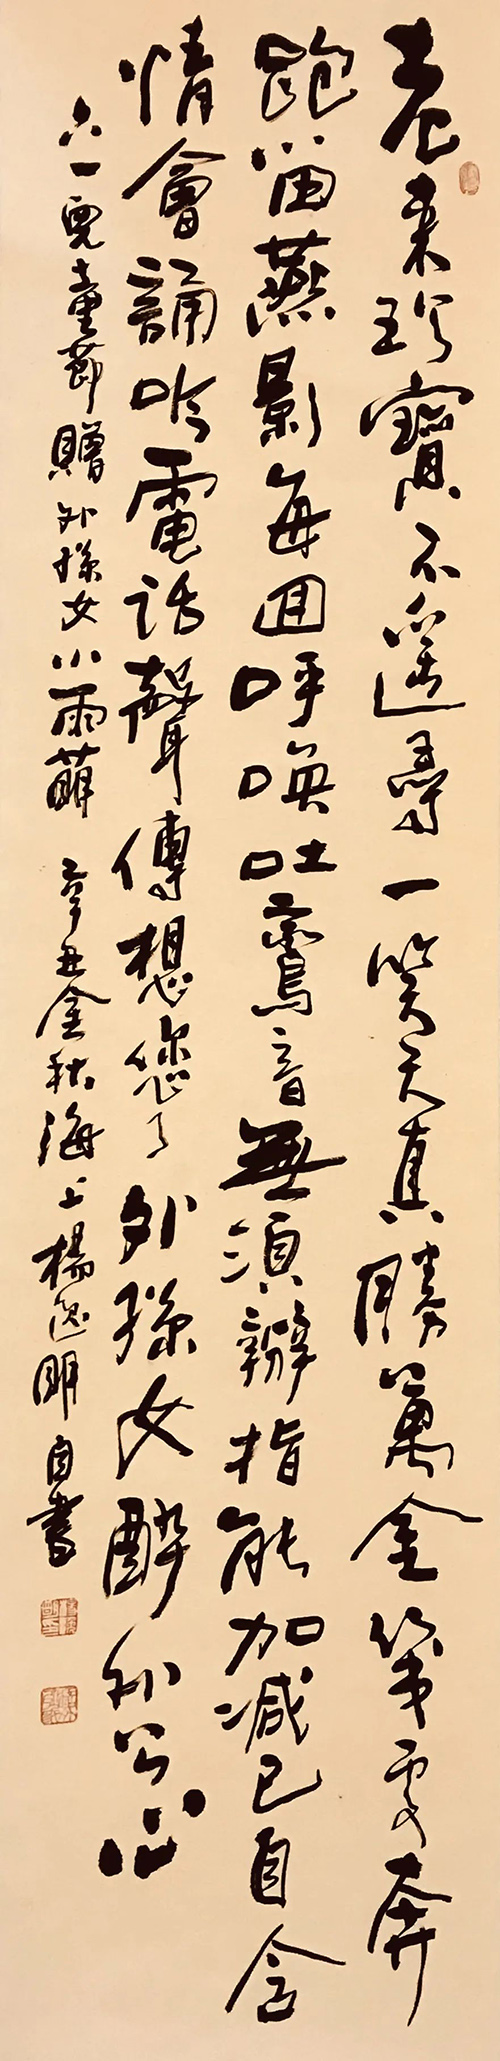 老來珍寶不遥尋一笑天真勝萬金幾處奔
跑留燕影每囬呼喚吐鸞音無須辦指能加減已自含
情會誦吟電話聲傳想您了外孫女醉外公心
六一兒童節贈外孫女小雨萌 辛丑金秋海上楊逸明自書